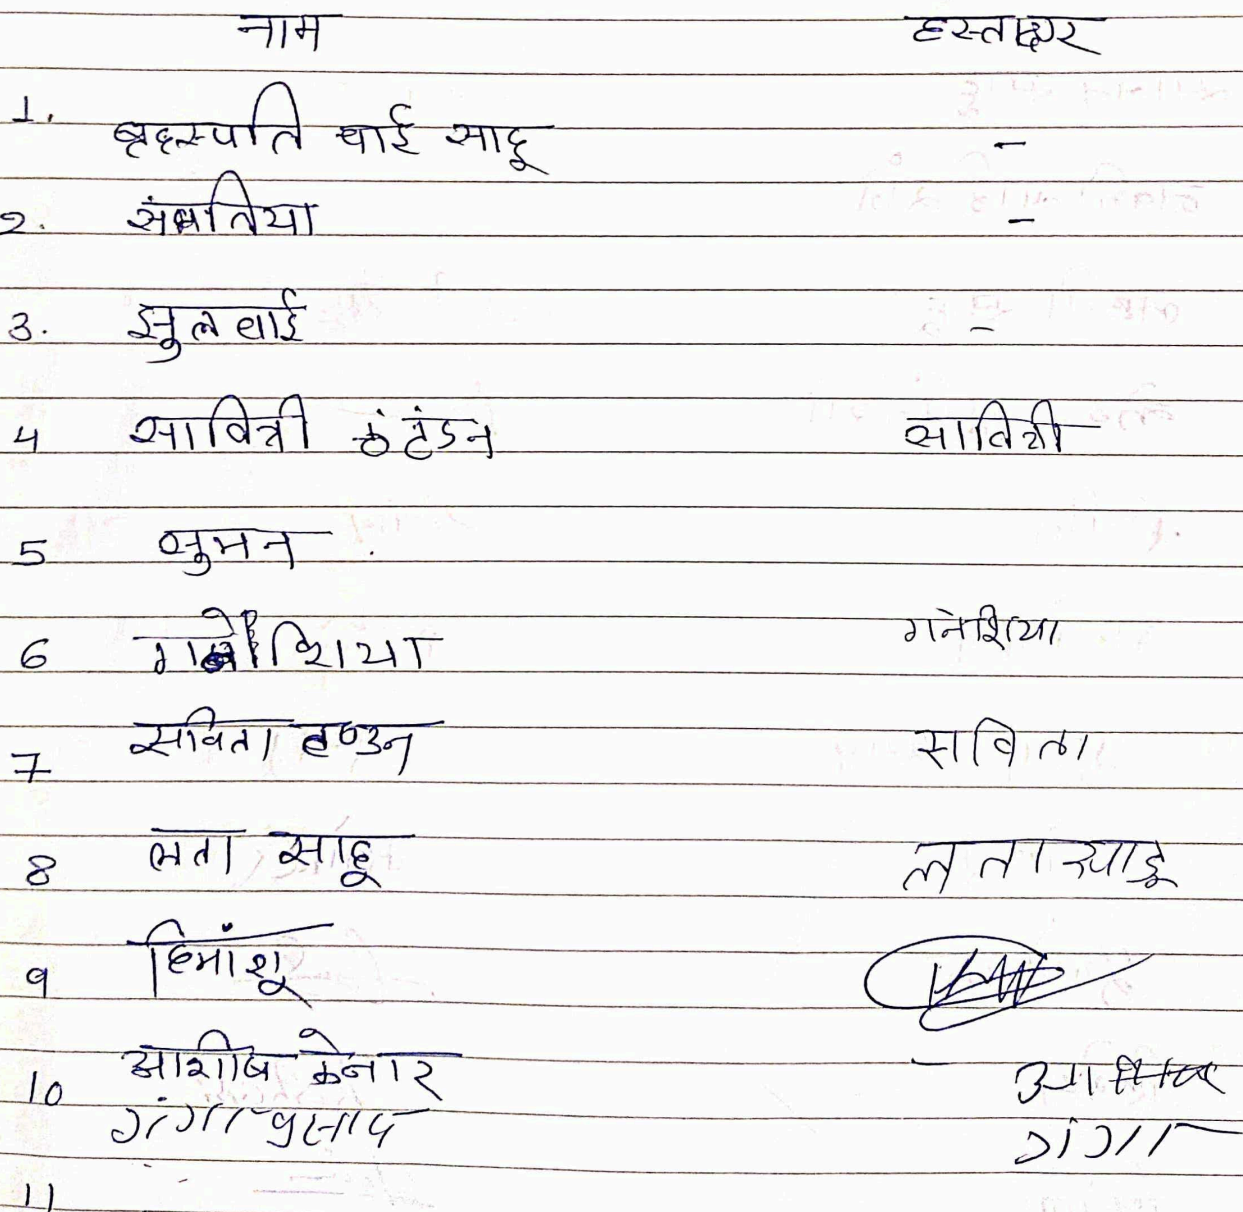 नाम हस्ताक्षर
1. बृहस्पति बाई साहू -
2. संपतिया -
3. झुल बाई -
4 सावित्री टंडन सावित्री
5 सुमन .
6 गनेशिया गनेशिया
7 सविता टण्डन सविता
8 लता साहू लता साहू
9 हिमांशू
10 आशीष केनार -
गंगा प्रसाद गंगा
11